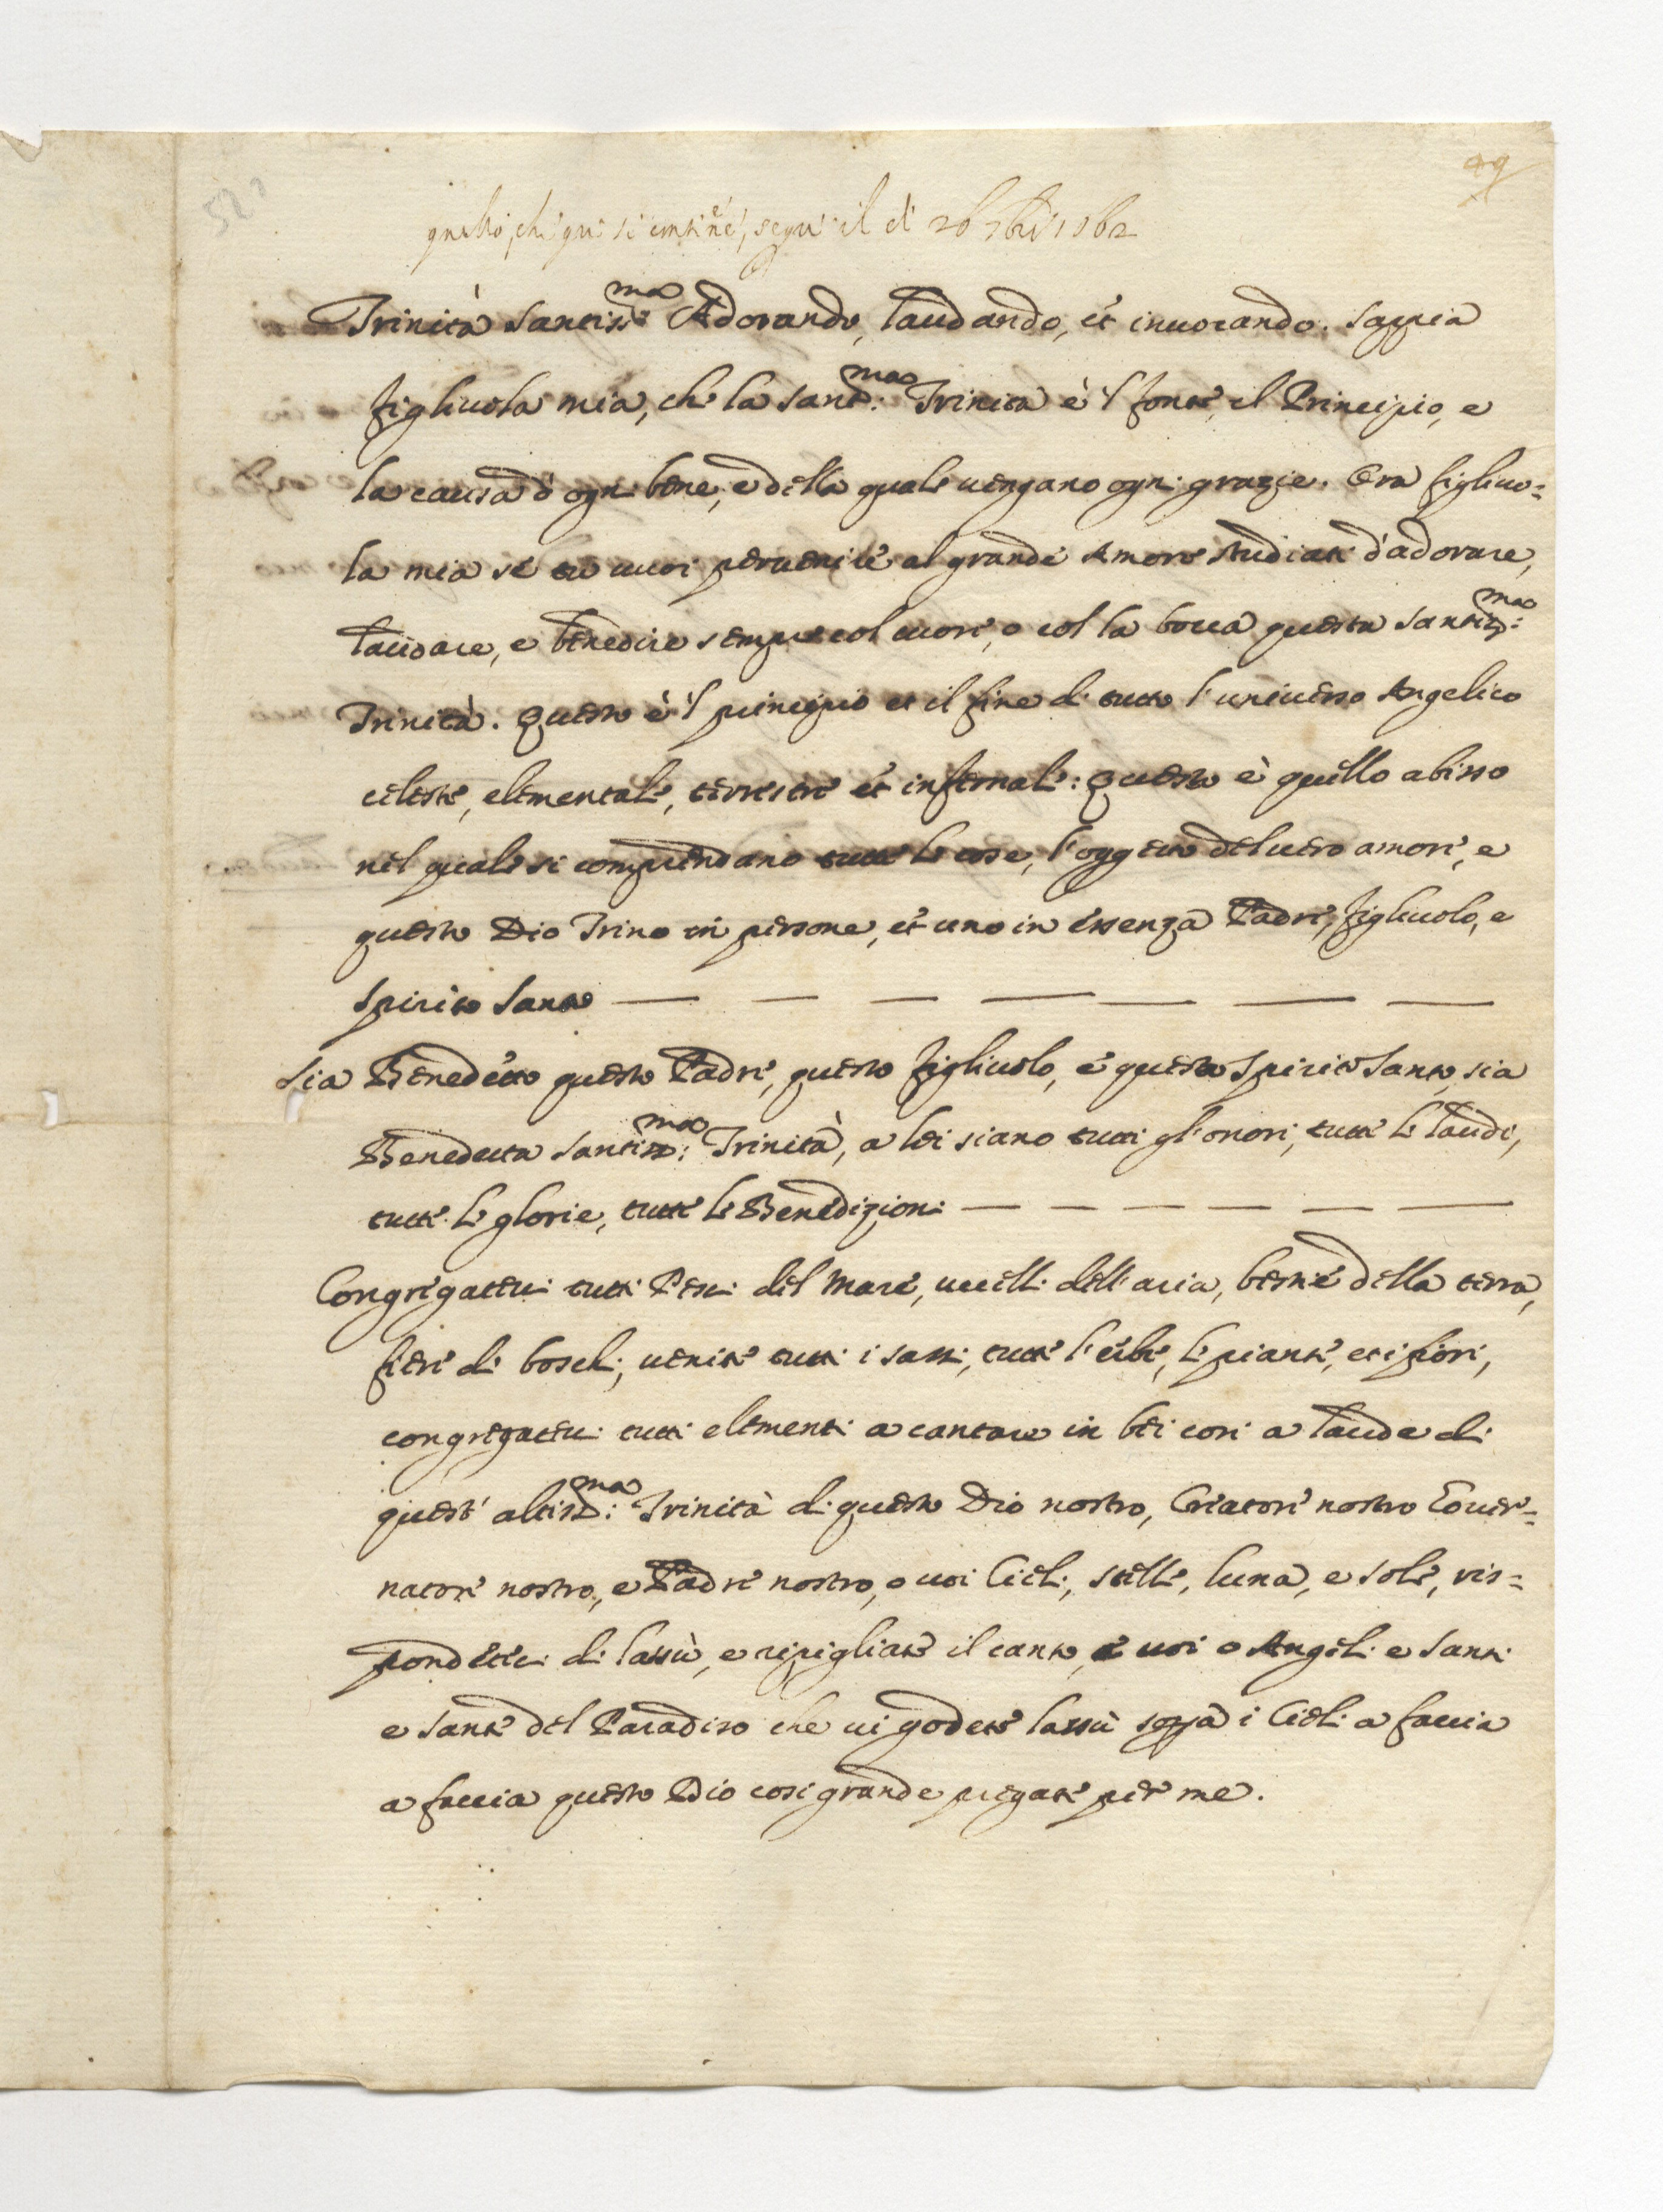 49
quello, che qui si contiene, seguì il dì 26 7bre 1662
Trinità Santiss:ma Adorando, laudando, et inuocando. Sappia
figliuola mia, che la Sant:ma Trinità è 'l fonte, il Principio, e
la causa d'ogni bene, e della quale uengano ogni grazie. Ora figliuo=
la mia se tu uuoi peruenire al grande Amore studiati d'adorare,
laudare, e benedire sempre col cuore, o col la bocca questa Santiss:ma
Trinità. Questo è 'l principio et il fine di tutto l'uniuerso Angelico
celeste, elementale, terrestre et infernale: Questo è quello abisso
nel quale si comprendano tutte le cose, l'oggetto del uero amore, e
questo Dio Trino in persone, et uno in essenza Padre, figliuolo, e
Spirito Santo — — — — — — —
Sia Benedetto questo Padre, questo figliuolo, e questo Spirito Santo, sia
Benedetta Santiss:ma Trinità, a lei siano tutti gl'onori, tutte le laude,
tutte le glorie, tutte le Benedizioni — — — — — —
Congregateui tutti Pesci del Mare, uccelli dell'aria, bestie della terra,
fiere di boschi, uenite tutti i sassi, tutte l'erbe, le piante, et i fiori,
congregateui tutti elementi a cantare in bei cori a laude di
quest' altiss:ma Trinità di questo Dio nostro, Creatore nostro Gouer=
natore nostro, e Padre nostro, o uoi Cieli, stelle, luna, e sole, ris=
pondeteci di lassù, e ripigliate il canto, e uoi o Angeli e Santi
e Sante del Paradiso che ui godete lassù soppa i Cieli a faccia
a faccia questo Dio così grande pregate per me.